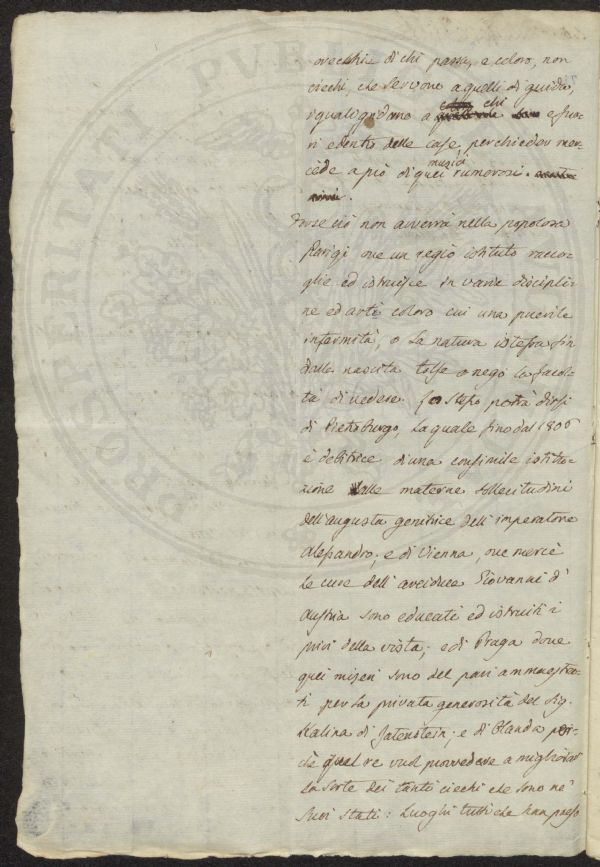 orecchie di chi passa, e coloro, non
ciechi, che servono a quelli di guida,
i quali gridano a chi e fuo-
ri e dentro delle case, per chieder mer-
cede a piò di quei musici rumorosi.
Forse ciò non avverrà nella popolosa
Parigi ove un regio istituto racco-
glie ed istruisce in varie discipli-
ne ed arti coloro cui una puerile
infermità, o la natura istessa fin
dalla nascita tolse o negò la facol-
tà di vedere. Lo stesso potrà dirsi
di Pietroburgo, la quale fino dal 1806
è debitrice d'una consimile istitu-
zione alle materne sollecitudini
dell'augusta genitrice dell'imperatore
Alessandro; e di Vienna, ove mercè
le cure dell'arciduca Giovanni d'
Austria sono educati ed istruiti i
privi della vista; e di Praga dove
quei miseri sono del pari ammaestra-
ti per la privata generosità del Sig.
Kalina di Jatenstein; e di Olanda per-
chè quel re vuol provvedere a migliorar
la sorte dei tanti ciechi che sono ne'
suoi stati: Luoghi tutti che han preso
PROSPERI
PVBLI